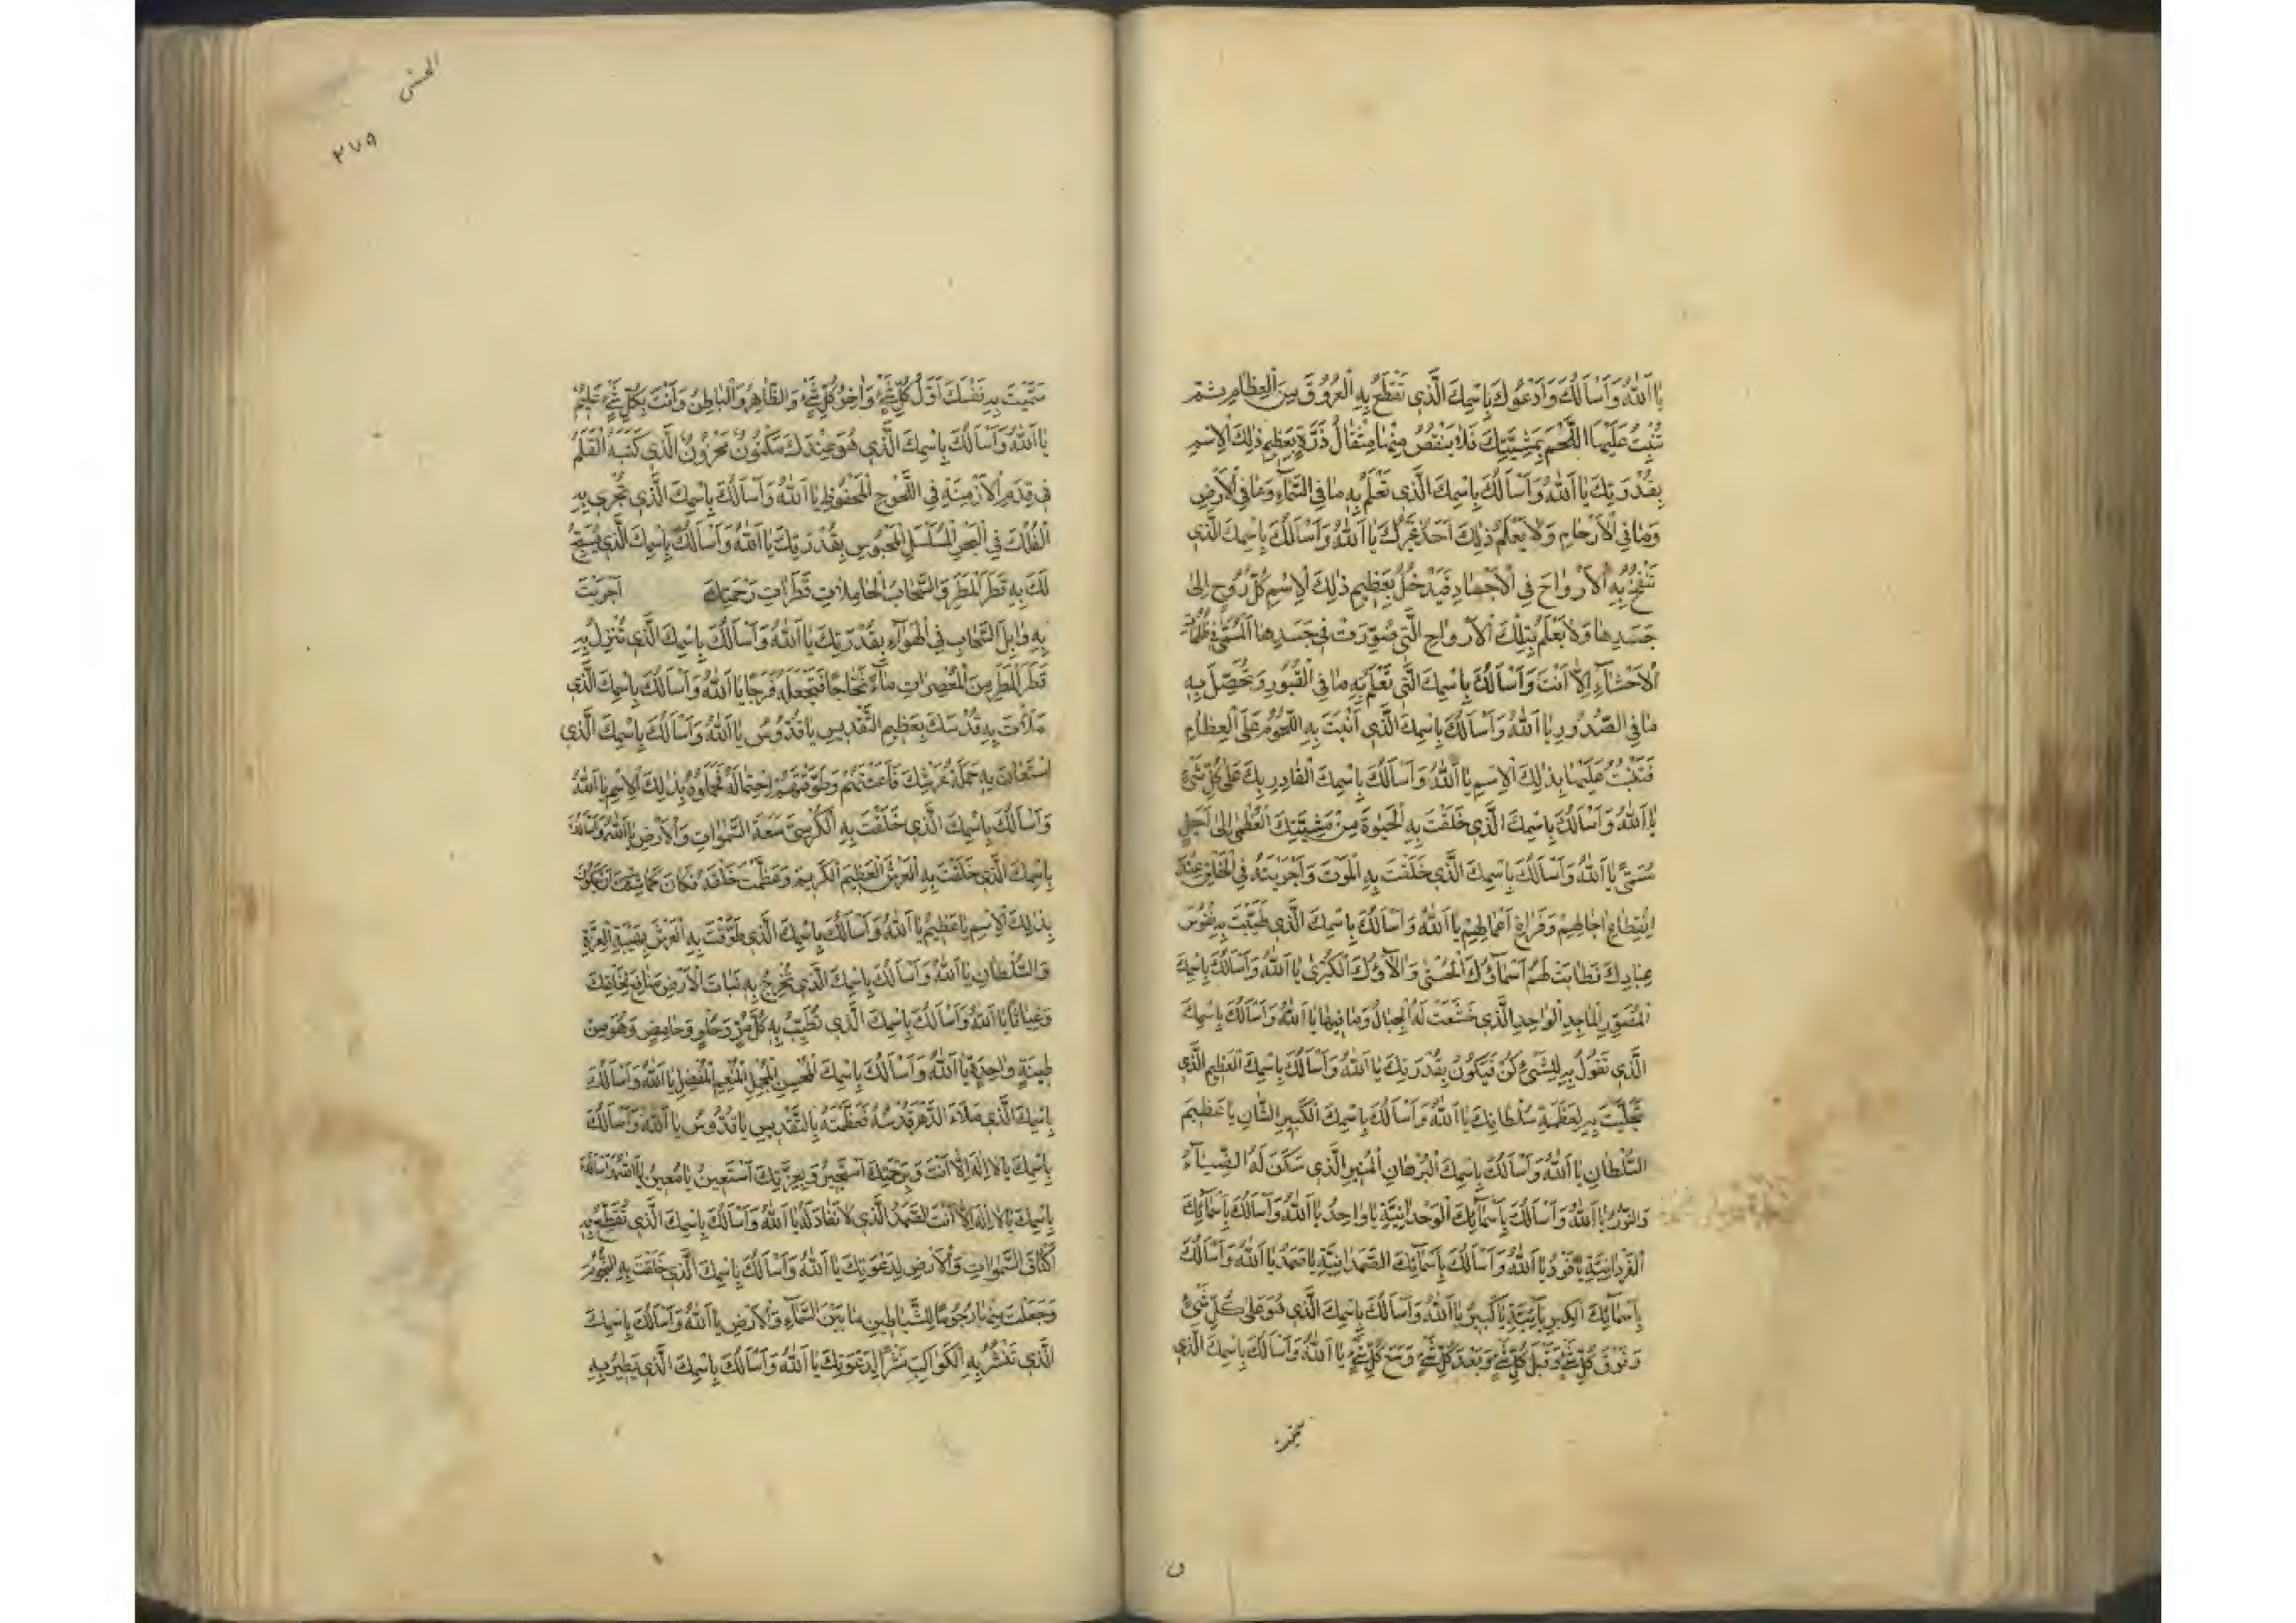 يا اَللهُ وَاَسْاَلُكَ وَاَدْعُوكَ بِاسْمِكَ الَّذى تَقْطَعُ بِهِ الْعُرُوقَ مِنَ الْعِظامِ ثُمَّ
تُنْبِتُ عَلَيْهَا اللَّحْمَ بِمَشِيَّتِكَ فَلا يَنْقُصُ مِنْها مِثْقالُ ذَرَّةٍ بِعَظيمِ ذلِكَ الاِسْمِ
بِقُدْرَتِكَ يا اَللهُ وَاَسْاَلُكَ بِاسْمِكَ الَّذى تَعْلَمُ بِهِ ما فِي السَّمآءِ وَما فِي الْاَرْضِ
وَما فِي الْاَرْحامِ وَلا يَعْلَمُ ذلِكَ اَحَدٌ غَيْرُكَ يا اَللهُ وَاَسْاَلُكَ بِاسْمِكَ الَّذى
تَنْفُخُ بِهِ الْاَرْواحَ فِي الْاَجْسادِ فَيَدْخُلُ بِعَظيمِ ذلِكَ الاِسْمِ كُلُّ رُوحٍ اِلى
جَسَدِها وَلا يَعْلَمُ بِتِلْكَ الْاَرْواحِ الَّتى صُوِّرَتْ فى جَسَدِهَا الْمُسَمّى فى ظُلُماتِ
الْاَحْشآءِ اِلّا اَنْتَ وَاَسْاَلُكَ بِاسْمِكَ الَّتى تَعْلَمُ بِهِ ما فِي الْقُبُورِ وَتُحَصِّلُ بِهِ
ما فِي الصُّدُورِ يا اَللهُ وَاَسْاَلُكَ بِاسْمِكَ الَّذى اَنْبَتَّ بِهِ اللُّحُومَ عَلَى الْعِظامِ
فَتَنْبُتُ عَلَيْها بِذلِكَ الاِسْمِ يا اَللهُ وَاَسْاَلُكَ بِاسْمِكَ الْقادِرِ بِكَ عَلى كُلِّ شَىْءٍ
يا اَللهُ وَاَسْاَلُكَ بِاسْمِكَ الَّذى خَلَقْتَ بِهِ الْحَيٰوةَ مِنْ مَشِيَّتِكَ الْعُظْمى اِلى اَجَلٍ
مُسَمّىً يا اَللهُ وَاَسْاَلُكَ بِاسْمِكَ الَّذى خَلَقْتَ بِهِ الْمَوْتَ وَاَجْرَيْتَهُ فِي الْخَلْقِ عِنْدَ
انْقِطاعِ اجالِهِمْ وَفَراغِ اَعْمالِهِمْ يا اَللهُ وَاَسْاَلُكَ بِاسْمِكَ الَّذى طَيَّبْتَ بِهِ نُفُوسَ
عِبادِكَ فَطابَتْ لَهُمْ اَسْمآؤُكَ الْحُسْنى وَالآؤُكَ الْكُبْرى يا اَللهُ وَاَسْاَلُكَ بِاسْمِكَ
الْمُصَوِّرِ الْماجِدِ الْواحِدِ الَّذى خَشَعَتْ لَهُ الْجِبالُ وَما فيها يا اَللهُ وَاَسْاَلُكَ بِاسْمِكَ
الَّذى تَقُولُ بِهِ لِلشَّىْءِ كُنْ فَيَكُونُ بِقُدْرَتِكَ يا اَللهُ وَاَسْاَلُكَ بِاسْمِكَ الْعَظيمِ الَّذى
تَجَلَّيْتَ بِهِ لِعَظَمَةِ سُلْطانِكَ يا اَللهُ وَاَسْاَلُكَ بِاسْمِكَ الْكَبيرِ الشَّانِ يا عَظيمَ
السُّلْطانِ يا اَللهُ وَاَسْاَلُكَ بِاسْمِكَ الْبُرْهانِ الْمُنيرِ الَّذى سَكَنَ لَهُ الضِّيآءُ
وَالنُّورُ يا اَللهُ وَاَسْاَلُكَ بِاَسْمآئِكَ الْوَحْدانِيَّةِ يا واحِدُ يا اَللهُ وَاَسْاَلُكَ بِاَسْمآئِكَ
الْفَرْدانِيَّةِ يا فَرْدُ يا اَللهُ وَاَسْاَلُكَ بِاَسْمآئِكَ الصَّمَدانِيَّةِ يا صَمَدُ يا اَللهُ وَاَسْاَلُكَ
بِاَسْمآئِكَ الْكِبْرِيآئِيَّةِ يا كَبيرُ يا اَللهُ وَاَسْاَلُكَ بِاسْمِكَ الَّذى هُوَ عَلى كُلِّ شَىْءٍ
وَفَوْقَ كُلِّ شَىْءٍ وَقَبْلَ كُلِّ شَىْءٍ وَبَعْدَ كُلِّ شَىْءٍ وَمَعَ كُلِّ شَىْءٍ يا اَللهُ وَاَسْاَلُكَ بِاسْمِكَ الَّذى
الحسنى
٣٧٩
سَمَّيْتَ بِهِ نَفْسَكَ اَوَّلَ كُلِّ شَىْءٍ وَاخِرَ كُلِّ شَىْءٍ وَالظّاهِرُ وَالْباطِنُ وَاَنْتَ بِكُلِّ شَىْءٍ عَليمٌ
يا اَللهُ وَاَسْاَلُكَ بِاسْمِكَ الَّذى هُوَ عِنْدَكَ مَكْنُونٌ مَخْزُونٌ الَّذى كَتَبَهُ الْقَلَمُ
فى قِدَمِ الْاَزْمِنَةِ فِي اللَّوْحِ الْمَحْفُوظِ يا اَللهُ وَاَسْاَلُكَ بِاسْمِكَ الَّذى تُجْرى بِهِ
الْفُلْكَ فِي الْبَحْرِ الْمُسَلْسَلِ الْمَحْبُوسِ بِقُدْرَتِكَ يا اَللهُ وَاَسْاَلُكَ بِاسْمِكَ الَّذى يُسَبِّحُ
لَكَ بِهِ قَطْرُ الْمَطَرِ وَالسَّحابُ الْحامِلاتِ قَطَراتِ رَحْمَتِكَ اَجْرَيْتَ
بِهِ وابِلَ السَّحابِ فِي الْهَوآءِ بِقُدْرَتِكَ يا اَللهُ وَاَسْاَلُكَ بِاسْمِكَ الَّذى تُنْزِلُ بِهِ
قَطْرَ الْمَطَرِ مِنَ الْمُعْصِراتِ مآءً ثَجّاجًا فَتَجْعَلُهُ فَرَجًا يا اَللهُ وَاَسْاَلُكَ بِاسْمِكَ الَّذى
مَلَأْتَ بِهِ قُدْسَكَ بِعَظيمِ التَّقْديسِ يا قُدُّوسُ يا اَللهُ وَاَسْاَلُكَ بِاسْمِكَ الَّذى
اسْتَعانَ بِهِ حَمَلَةُ عَرْشِكَ فَاَعَنْتَهُمْ وَطَوَّقْتَهُمْ احْتِمالَهُ فَحَمَلُوهُ بِذلِكَ الاِسْمِ يا اَللهُ
وَاَسْاَلُكَ بِاسْمِكَ الَّذى خَلَقْتَ بِهِ الْكُرْسِىَّ سَعَةَ السَّمٰواتِ وَالْاَرْضِ يا اَللهُ وَاَسْاَلُكَ
بِاسْمِكَ الَّذى خَلَقْتَ بِهِ الْعَرْشَ الْعَظيمَ الْكَريمَ وَعَظَّمْتَ خَلْقَهُ فَكانَ كَما شِئْتَ اَنْ يَكُونَ
بِذلِكَ الاِسْمِ يا عَظيمُ يا اَللهُ وَاَسْاَلُكَ بِاسْمِكَ الَّذى طَوَّقْتَ بِهِ الْعَرْشَ بِهَيْبَةِ الْعِزَّةِ
وَالسُّلْطانِ يا اَللهُ وَاَسْاَلُكَ بِاسْمِكَ الَّذى تُخْرِجُ بِهِ نَباتَ الْاَرْضِ مَنافِعَ لِخَلْقِكَ
وَغِياثًا يا اَللهُ وَاَسْاَلُكَ بِاسْمِكَ الَّذى تُطَيِّبُ بِهِ كُلَّ مُرٍّ وَحُلْوٍ وَحامِضٍ وَهُوَ مِنْ
طينَةٍ واحِدَةٍ يا اَللهُ وَاَسْاَلُكَ بِاسْمِكَ الْمُحْسِنِ الْمُجْمِلِ الْمُنْعِمِ الْمُفْضِلِ يا اَللهُ وَاَسْاَلُكَ
بِاسْمِكَ الَّذى مَلَأَ الدَّهْرَ قُدْسُهُ فَعَظَّمْتَهُ بِالتَّقْديسِ يا قُدُّوسُ يا اَللهُ وَاَسْاَلُكَ
بِاسْمِكَ يا لا اِلهَ اِلّا اَنْتَ وَبِرَحْمَتِكَ اَسْتَجيرُ وَبِعِزَّتِكَ اَسْتَعينُ يا مُعينُ يا اَللهُ وَاَسْاَلُكَ
بِاسْمِكَ يا لا اِلهَ اِلّا اَنْتَ الصَّمَدُ الَّذى لا نَفادَ لَهُ يا اَللهُ وَاَسْاَلُكَ بِاسْمِكَ الَّذى تُقَطِّعُ بِهِ
اَكْنافَ السَّمٰواتِ وَالْاَرْضِ لِدَعْوَتِكَ يا اَللهُ وَاَسْاَلُكَ بِاسْمِكَ الَّذى خَلَقْتَ بِهِ النُّجُومَ
وَجَعَلْتَ مِنْها رُجُومًا لِلشَّياطينِ ما بَيْنَ السَّمآءِ وَالْاَرْضِ يا اَللهُ وَاَسْاَلُكَ بِاسْمِكَ
الَّذى تَنْشُرُ بِهِ الْكَواكِبَ نَشْرًا لِدَعْوَتِكَ يا اَللهُ وَاَسْاَلُكَ بِاسْمِكَ الَّذى يَطيرُ بِهِ